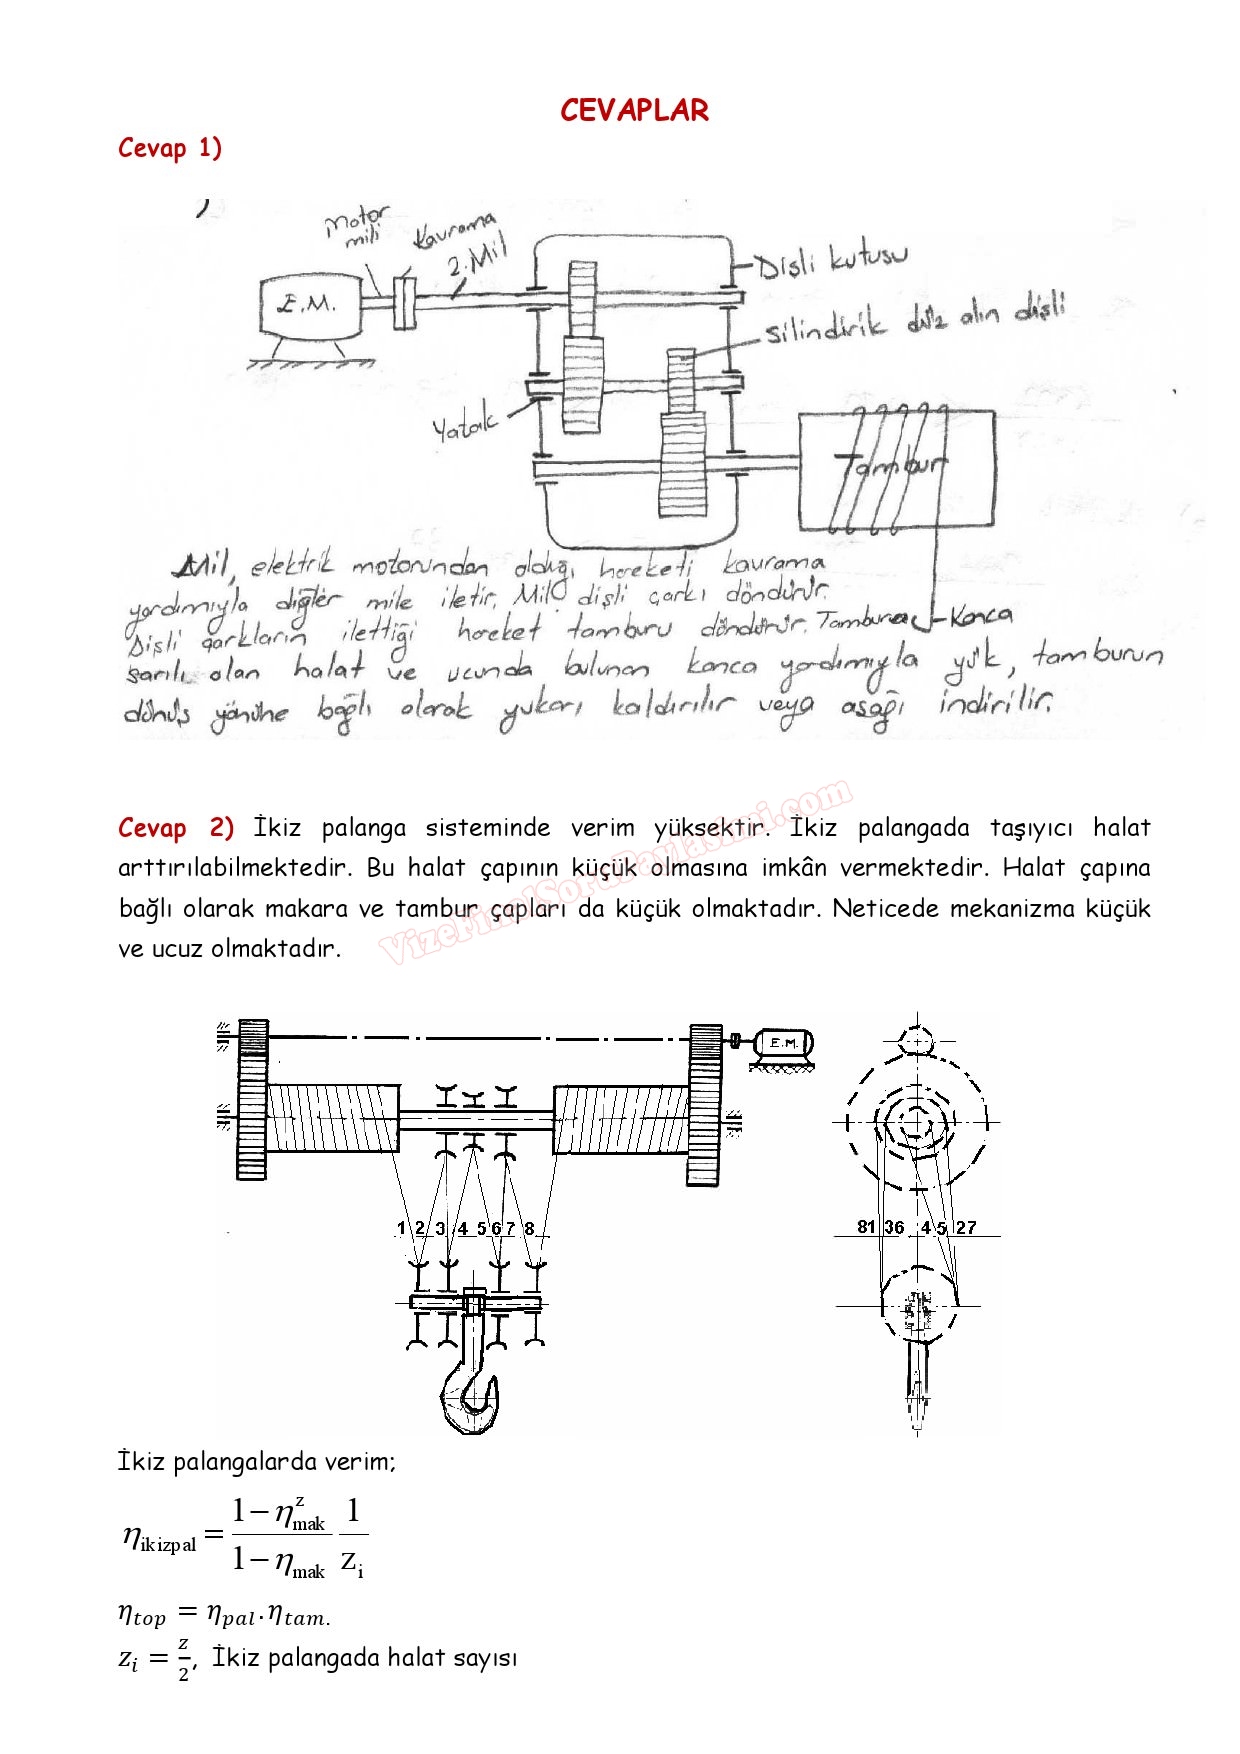 CEVAPLAR
Cevap 1)
Motor
mili
Kavrama
2. Mil
Dişli kutusu
E.M.
silindirik düz alın dişli
Yatak
Tambur
Mil, elektrik motorundan aldığı hareketi kavrama
yardımıyla diğer mile iletir. Mil dişli çarkı döndürür.
Dişli çarkların ilettiği hareket tamburu döndürür. Tambura
Kanca
sarılı olan halat ve ucunda bulunan kanca yardımıyla yük, tamburun
dönüş yönüne bağlı olarak yukarı kaldırılır veya aşağı indirilir.
Cevap 2) İkiz palanga sisteminde verim yüksektir. İkiz palangada taşıyıcı halat
arttırılabilmektedir. Bu halat çapının küçük olmasına imkân vermektedir. Halat çapına
bağlı olarak makara ve tambur çapları da küçük olmaktadır. Neticede mekanizma küçük
ve ucuz olmaktadır.
VizeFinalSoruPaylasimi.com
E.M.
1 2 3 4 5 6 7 8
81 36 4 5 27
İkiz palangalarda verim;
η_ikizpal = (1 − η_mak^z)/(1 − η_mak) 1/z_i
η_top = η_pal . η_tam.
z_i = z/2, İkiz palangada halat sayısı